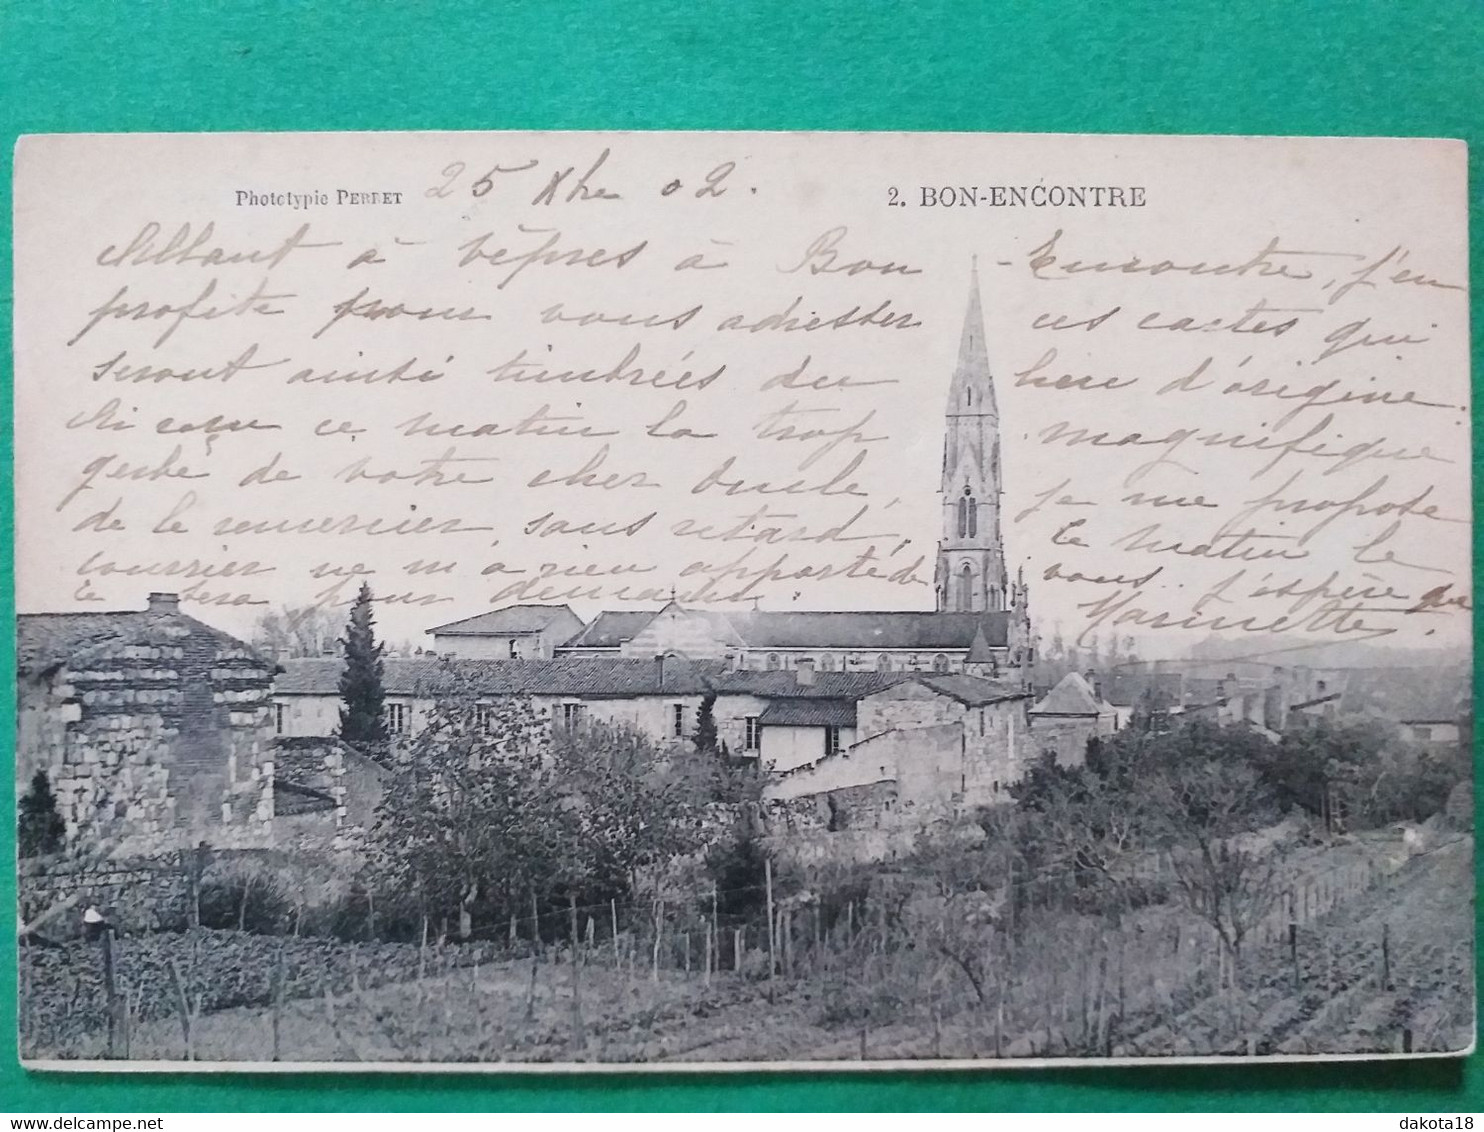 Phototypie PERRET 25 Xbre 02. 2. BON-ENCONTRE
Allant à vêpres à Bon - Encontre, j'en
profite pour vous adresser ces cartes qui
seront ainsi timbrées du lieu d'origine.
ai ce matin la trop magnifique
gerbe de votre cher oncle, je me propose
de le remercier, sans retard. Ce matin le
courrier ne m'a rien apporté de vous. J'espère que
ce sera pour demain. Marinette.
dakota18